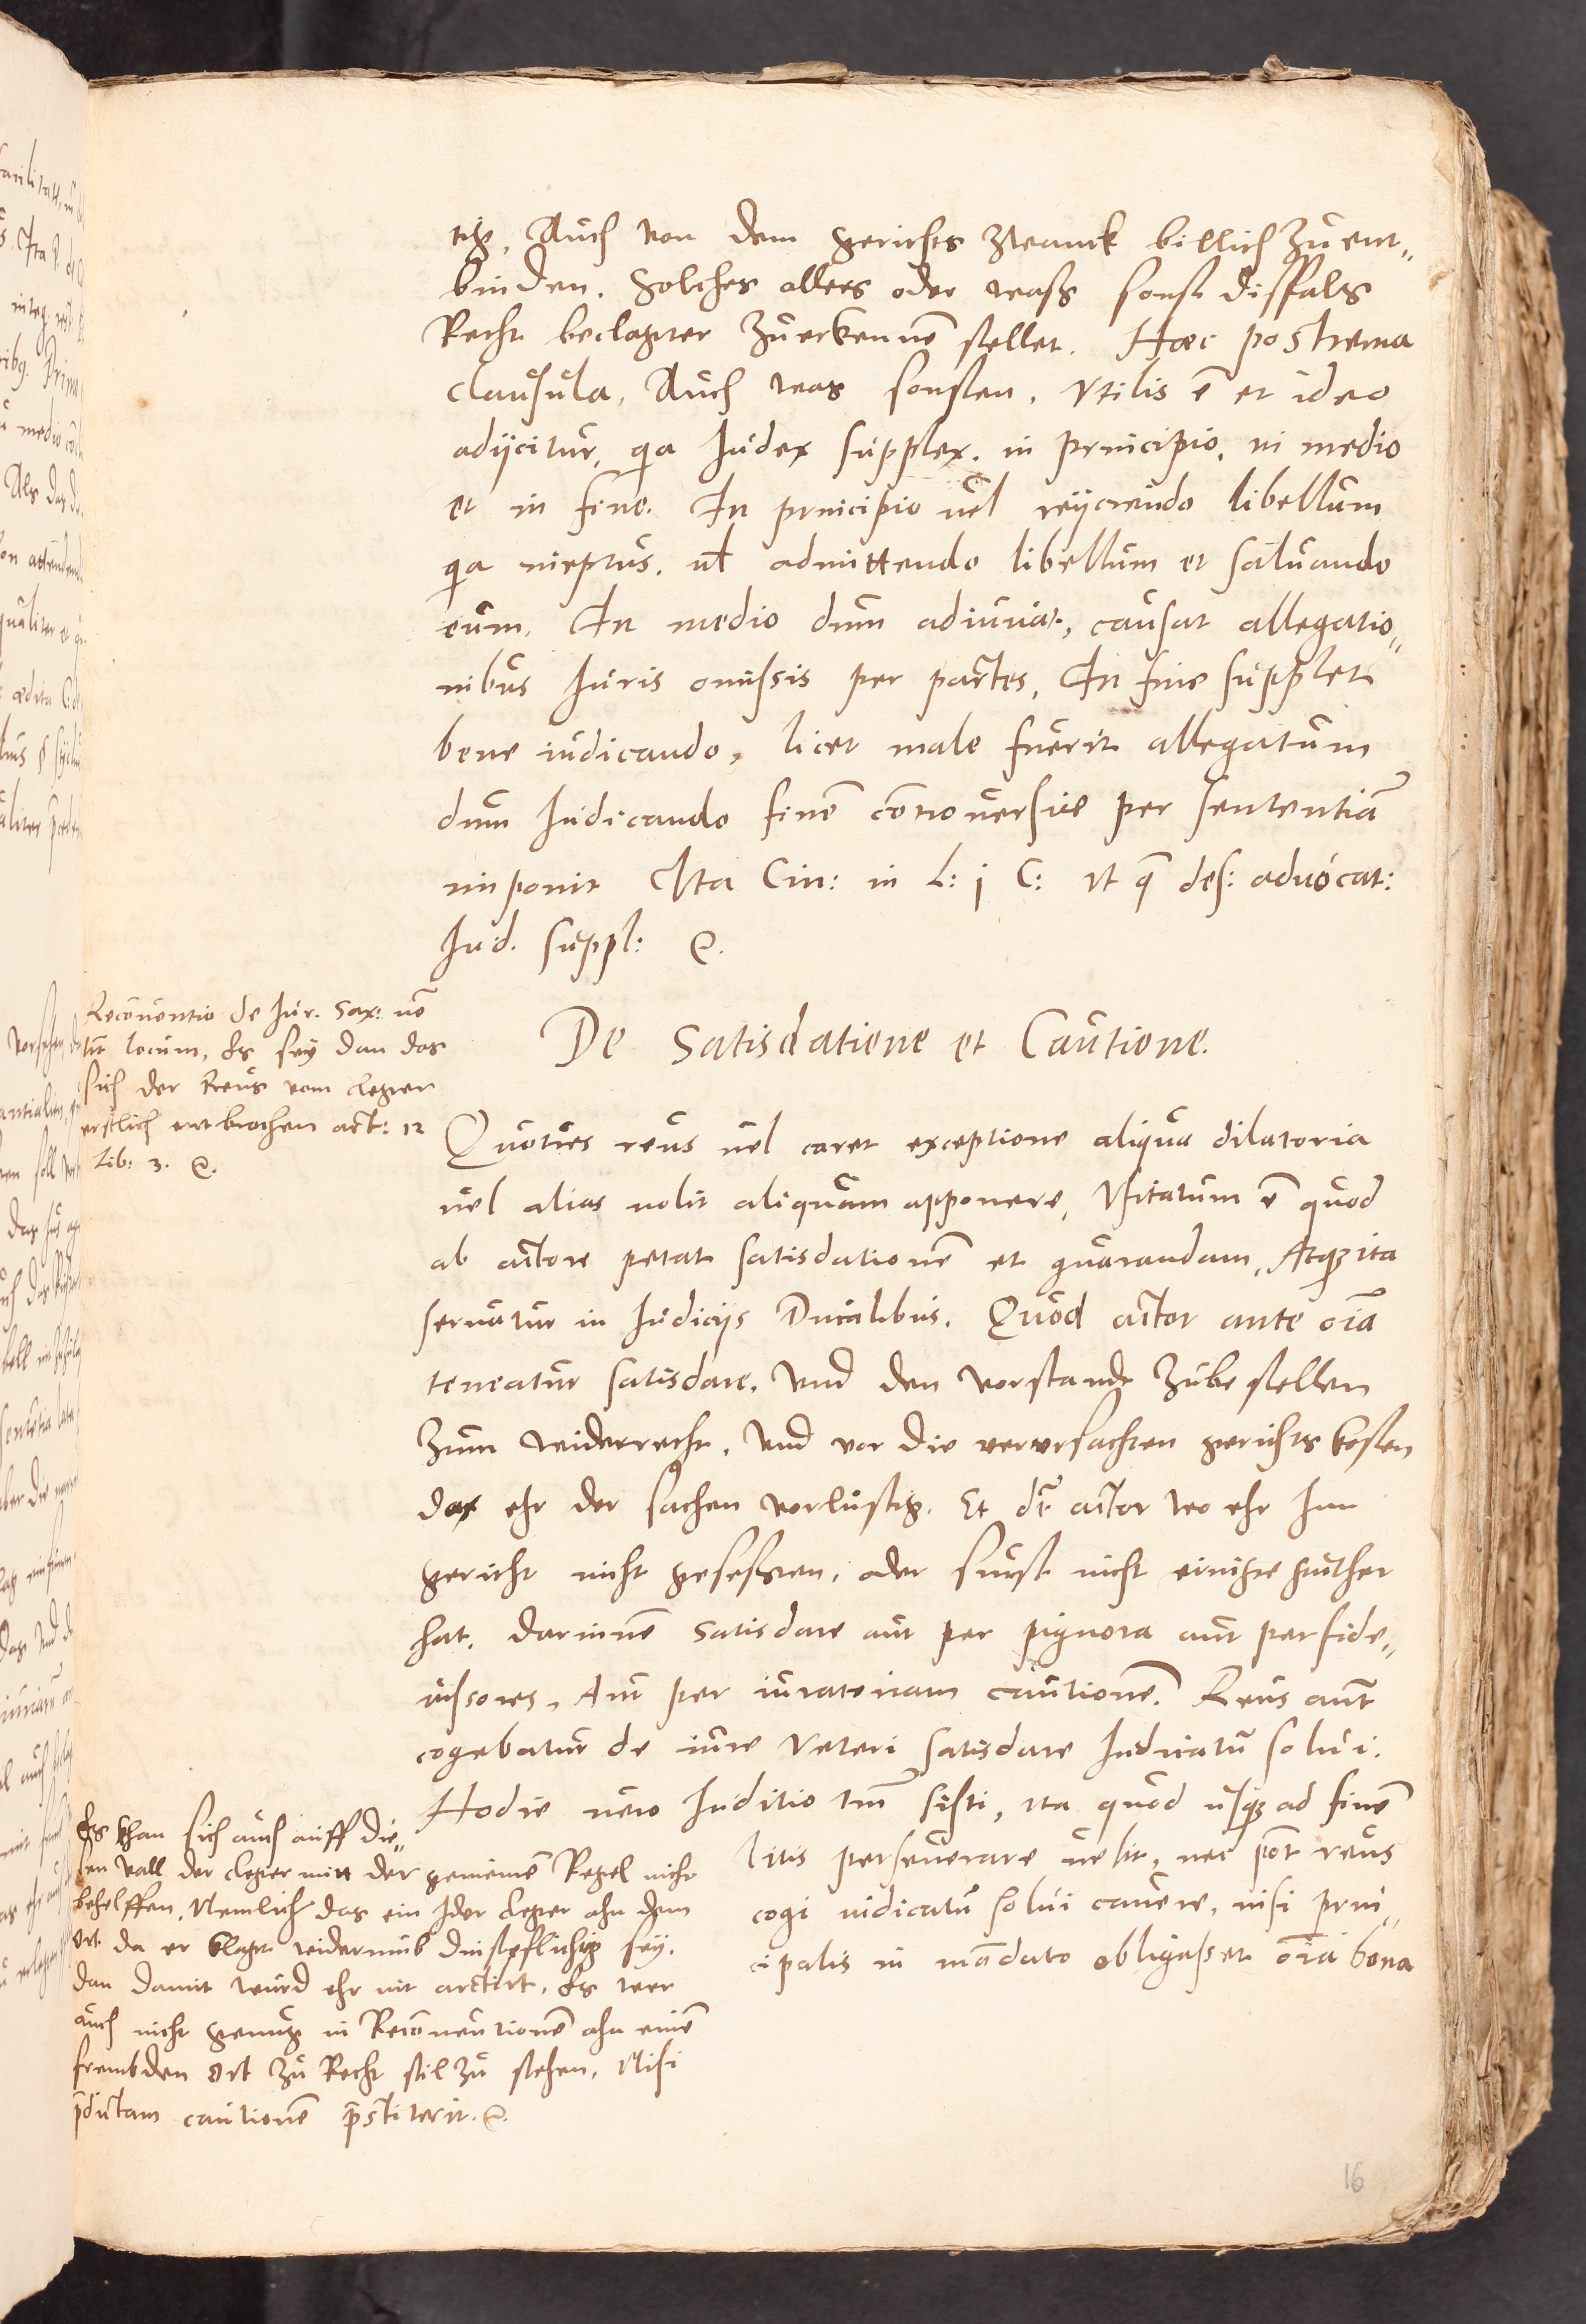 tigk, Auch von dem gerichts Zwanck billich zu ent„
binden. Solches alles oder waß sonst disfals
Recht beclagter zuerkennē stellet. Hæc postrema
clausula, Auch was sonsten, Vtilis ē et ideo
adijcitur, qa Iudex supplex. in principio, in medio
et in fine. In principio uel reijciendo libellum
qa ineptus. ul admittendo libellum et saluando
eum, In medio dum adiuuat, causat allegatio„
nibus Iuris omissis per partes, In fine supplet
bene iudicando, licet male fuerit allegatum
dum Iudicando finē cōtrouersiæ per sententiā
imponit Ita Cin: in L: j C: Vt q̄ des: aduocat:
Iud. suppl: &.
Reconuentio de Iur. Sax: nō
tit locum, Es sey dan das
sich der Reus vom cleger
erstlich entbrochen art: 12
Lib: 3. &.
De Satisdatione et Cautione.
Quoties reus uel caret exceptione aliqua dilatoria
uel alias nolit aliquam apponere, Vsitatum ē quod
ab actore petat satisdationē et guarandam, Atq3 ita
seruatur in Iudicijs Ducalibus. Quod actor ante oīa
teneatur satisdare, Vnd den vorstandt zubestellen
zum widerrecht, Vnd vor die verursachten gerichts kosten
das ehr der sachen vorlustig. Et dr̄ actor wo ehr Im
gericht nicht gesessen, oder sunst nicht einige guether
hat, darinnē satisdare aut per pignora aut per fide„
iussores, Aut per iuratoriam cautionē. Reus aut̄
cogebatur de iure Veteri satisdare Iudicatū solui.
Hodie uero Iuditio tm̄ sisti, ita quod usq3 ad finē
litis perseuerare uelit, nec pōt reus
cogi iudicatū solui cauere, nisi prin„
cipalis in mādato obligasset oīa bona
Es khan sich auch auff die„
sen Vall der cleger mitt der gemeinē Regel nicht
behelffen, Nemlich das ein Ider cleger ahn dem
Ort da er klagt widerumb dinstpflichtig sey.
dan damit würd ehr nit arctirt, Es wer
auch nicht genug in Recōuentionē ahn einē
frembden Ort zu Recht stil zu stehen, Nisi
p̄dictam cautionē p̄stiterit. &.
16